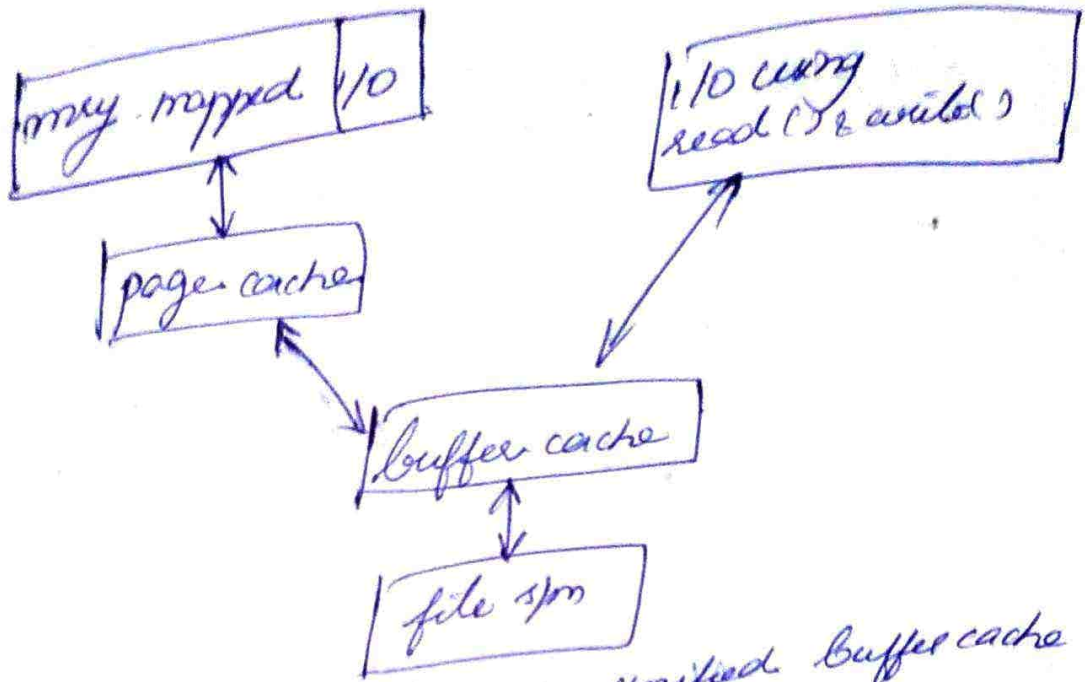 mry mapped I/O
I/O using
read() & write()
page cache
buffer cache
file s/m
unified buffer cache